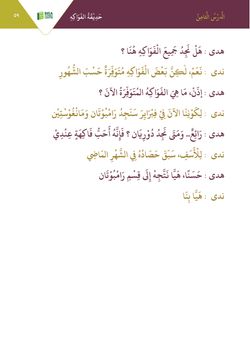 الدَّرْسُ الثَّامِنُ
حَدِيْقَةُ الفَوَاكِهِ
٥٩
هدى : هَلْ نَجِدُ جَمِيعَ الْفَوَاكِهِ هُنَا ؟
ندى : نَعَمْ، لَكِنَّ بَعْضَ الْفَوَاكِهِ مُتَوَفِّرَةٌ حَسْبَ الشُّهُورِ
هدى : إِذَنْ، مَا هِيَ الْفَوَاكِهُ الْمُتَوَفِّرَةُ الآنَ ؟
ندى : لِكَوْنِنَا الآنَ فِيْ فِبْرَايِرَ سَنَجِدُ رَامْبُوْتَان وَمَانْغُوْسْتِيْن
هدى : رَائِعٌ.. وَمَتَى نَجِدُ دُوْرِيَان ؟ فَإِنَّهُ أَحَبُّ فَاكِهَةٍ عِنْدِيْ
ندى : لِلْأَسَفِ، سَبَقَ حَصَادُهُ فِي الشَّهْرِ الْمَاضِي
هدى : حَسَنًا، هَيَّا نَتَّجِهْ إِلَى قِسْمِ رَامْبُوْتَان
ندى : هَيَّا بِنَا